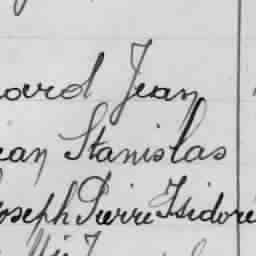 ard Jean
ean Stanislas
oseph Pierre Isidore